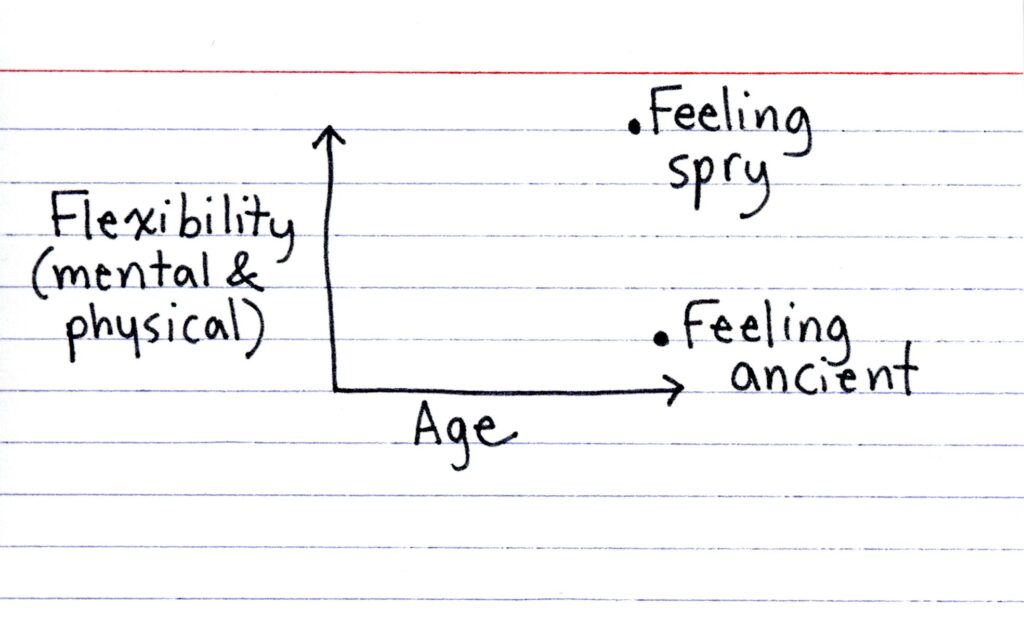 Feeling
spry
Flexibility
(mental &
physical)
Feeling
ancient
Age